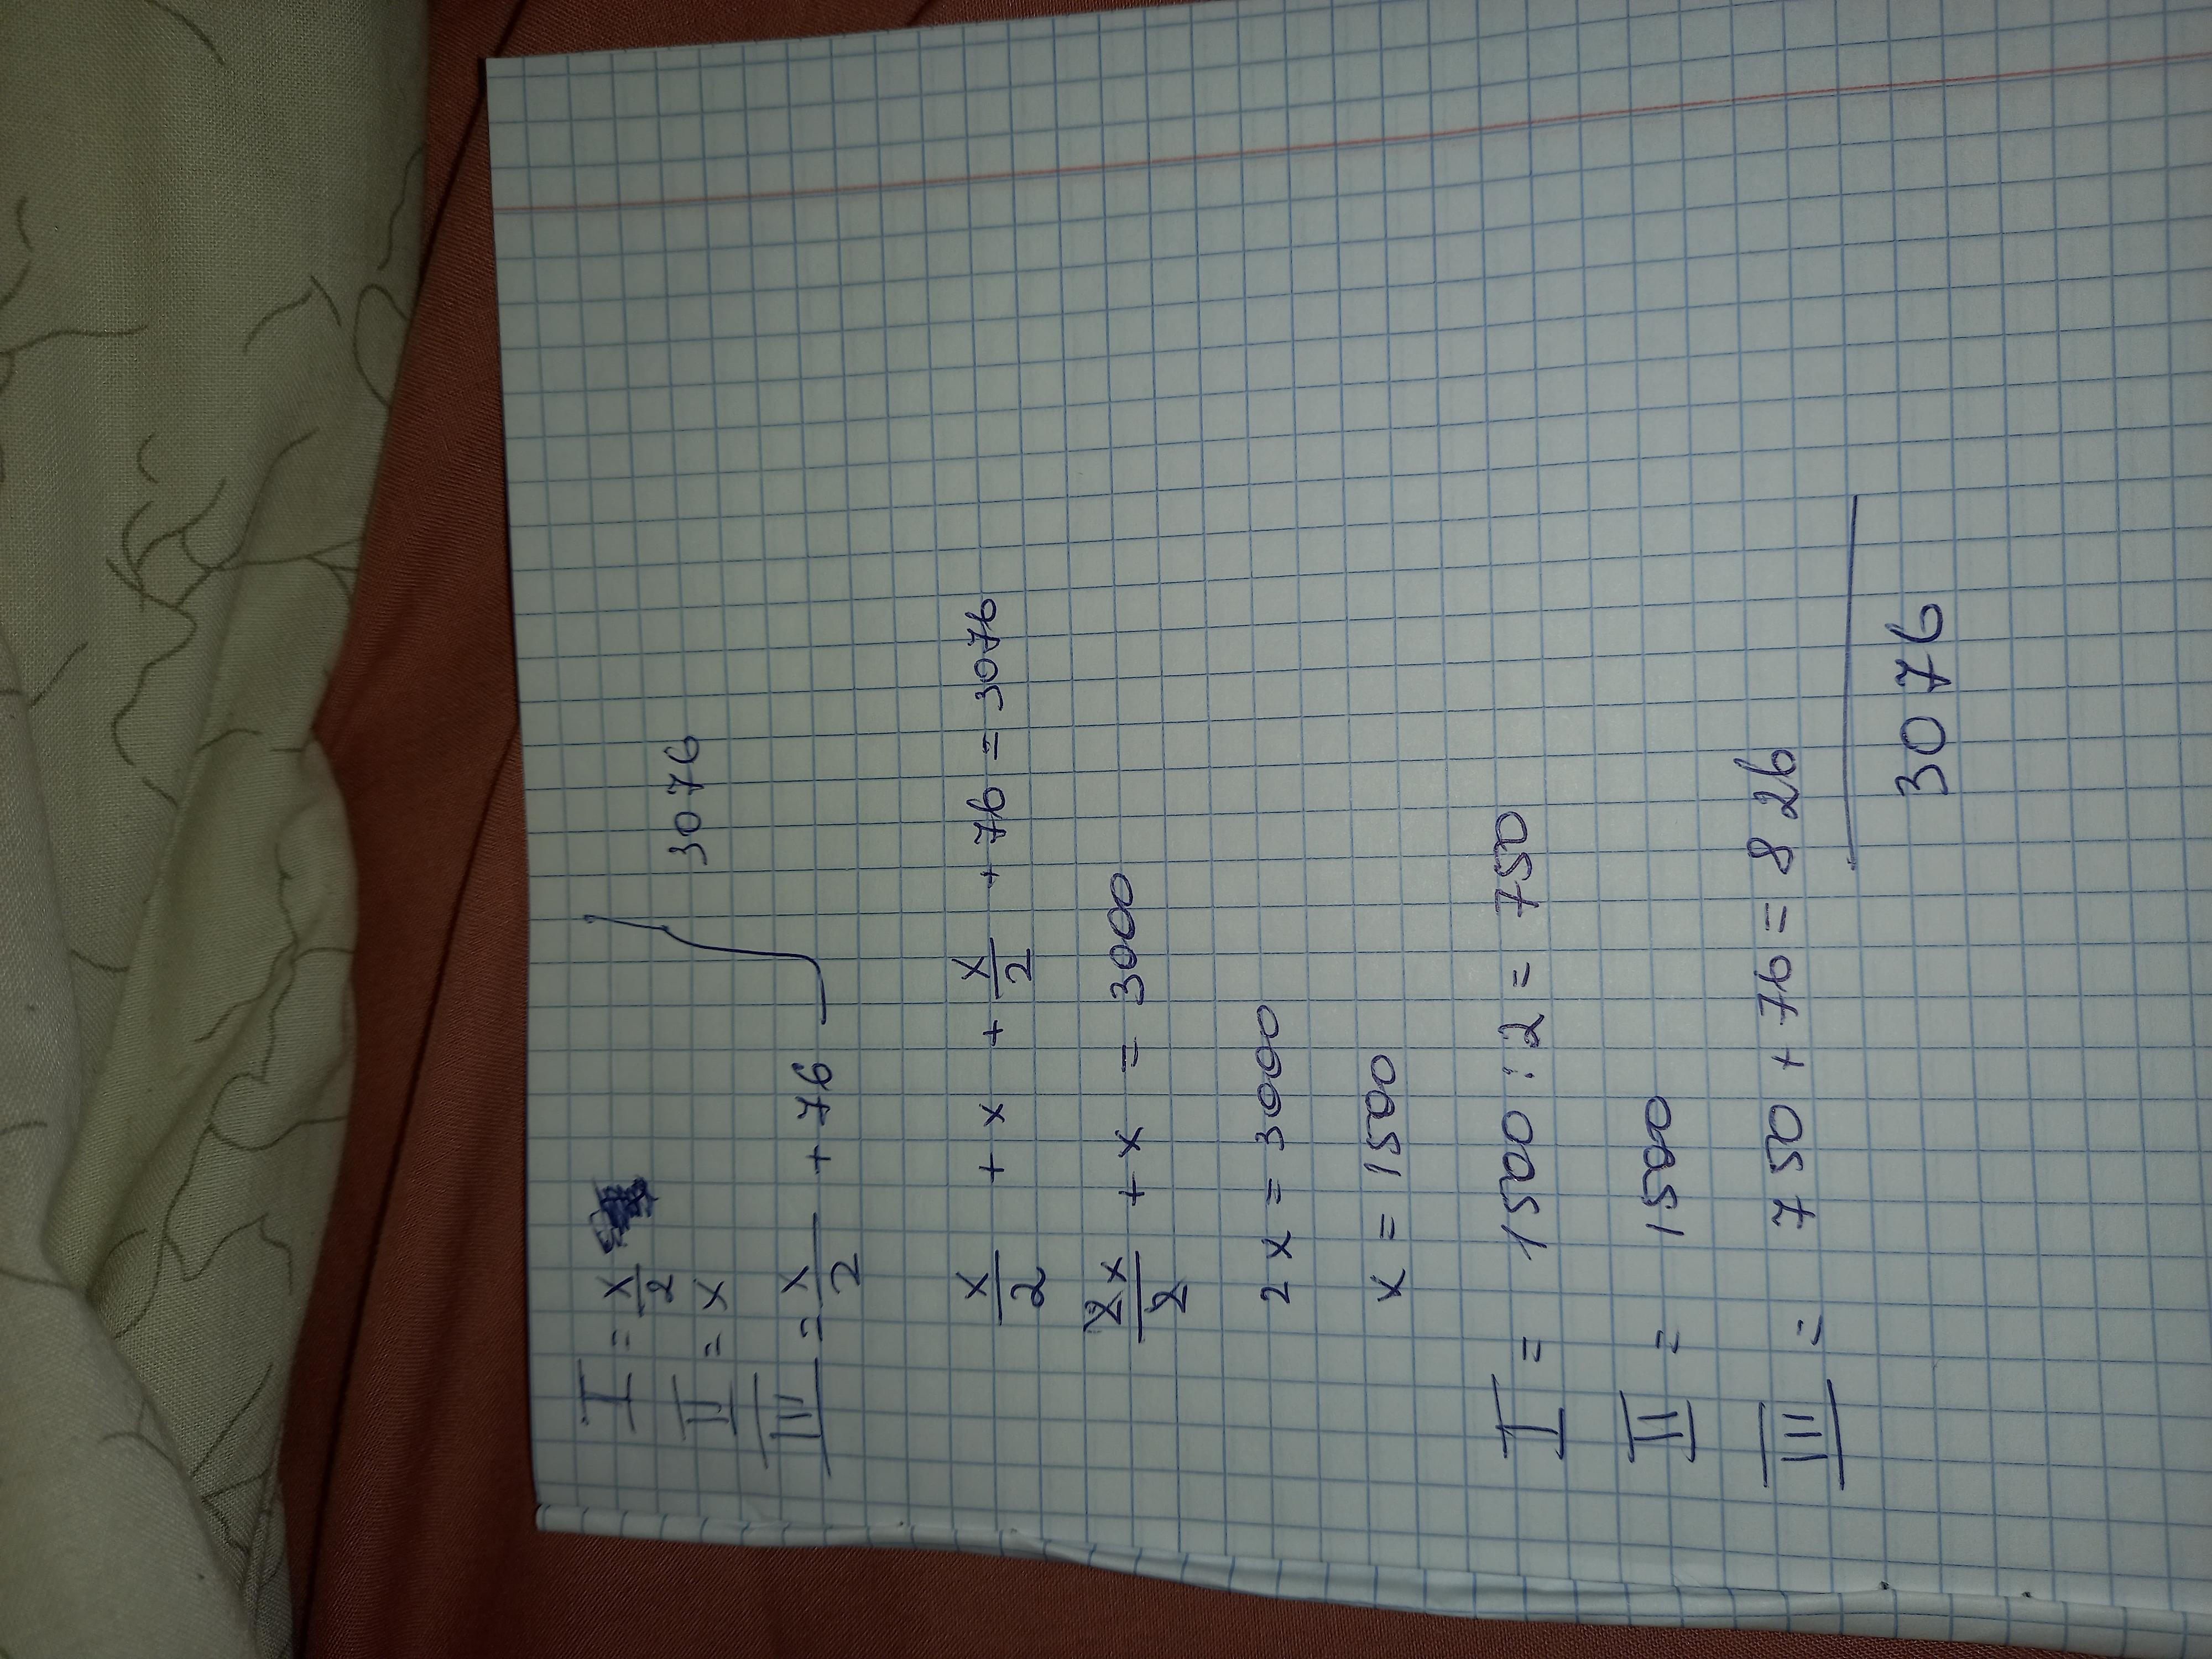 I = x/2
II = x
III = x/2 + 76
3076
x/2 + x + x/2 + 76 = 3076
2x/2 + x = 3000
2x = 3000
x = 1500
I = 1500 : 2 = 750
II = 1500
III = 750 + 76 = 826
3076